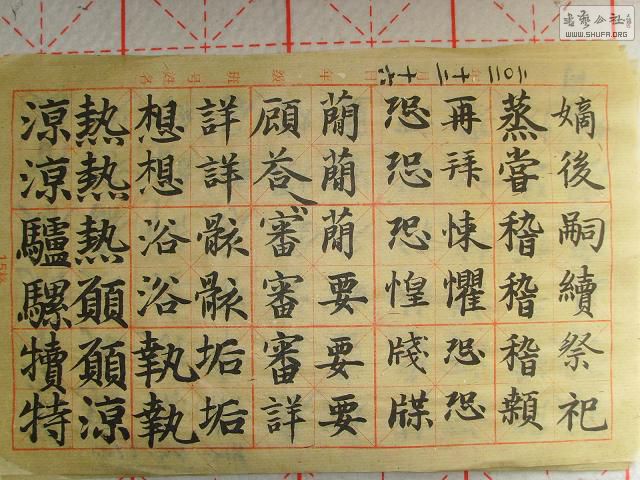 書藝公社
WWW.SHUFA.ORG
十二月十六日
嫡後嗣續祭祀
蒸嘗稽稽稽顙
再拜悚懼恐恐
恐恐恐惶牋牒
簡簡簡要要要
顧荅審審審詳
詳詳骸骸垢垢
想想浴浴執執
熱熱熱願願涼
涼涼驢騾犢特